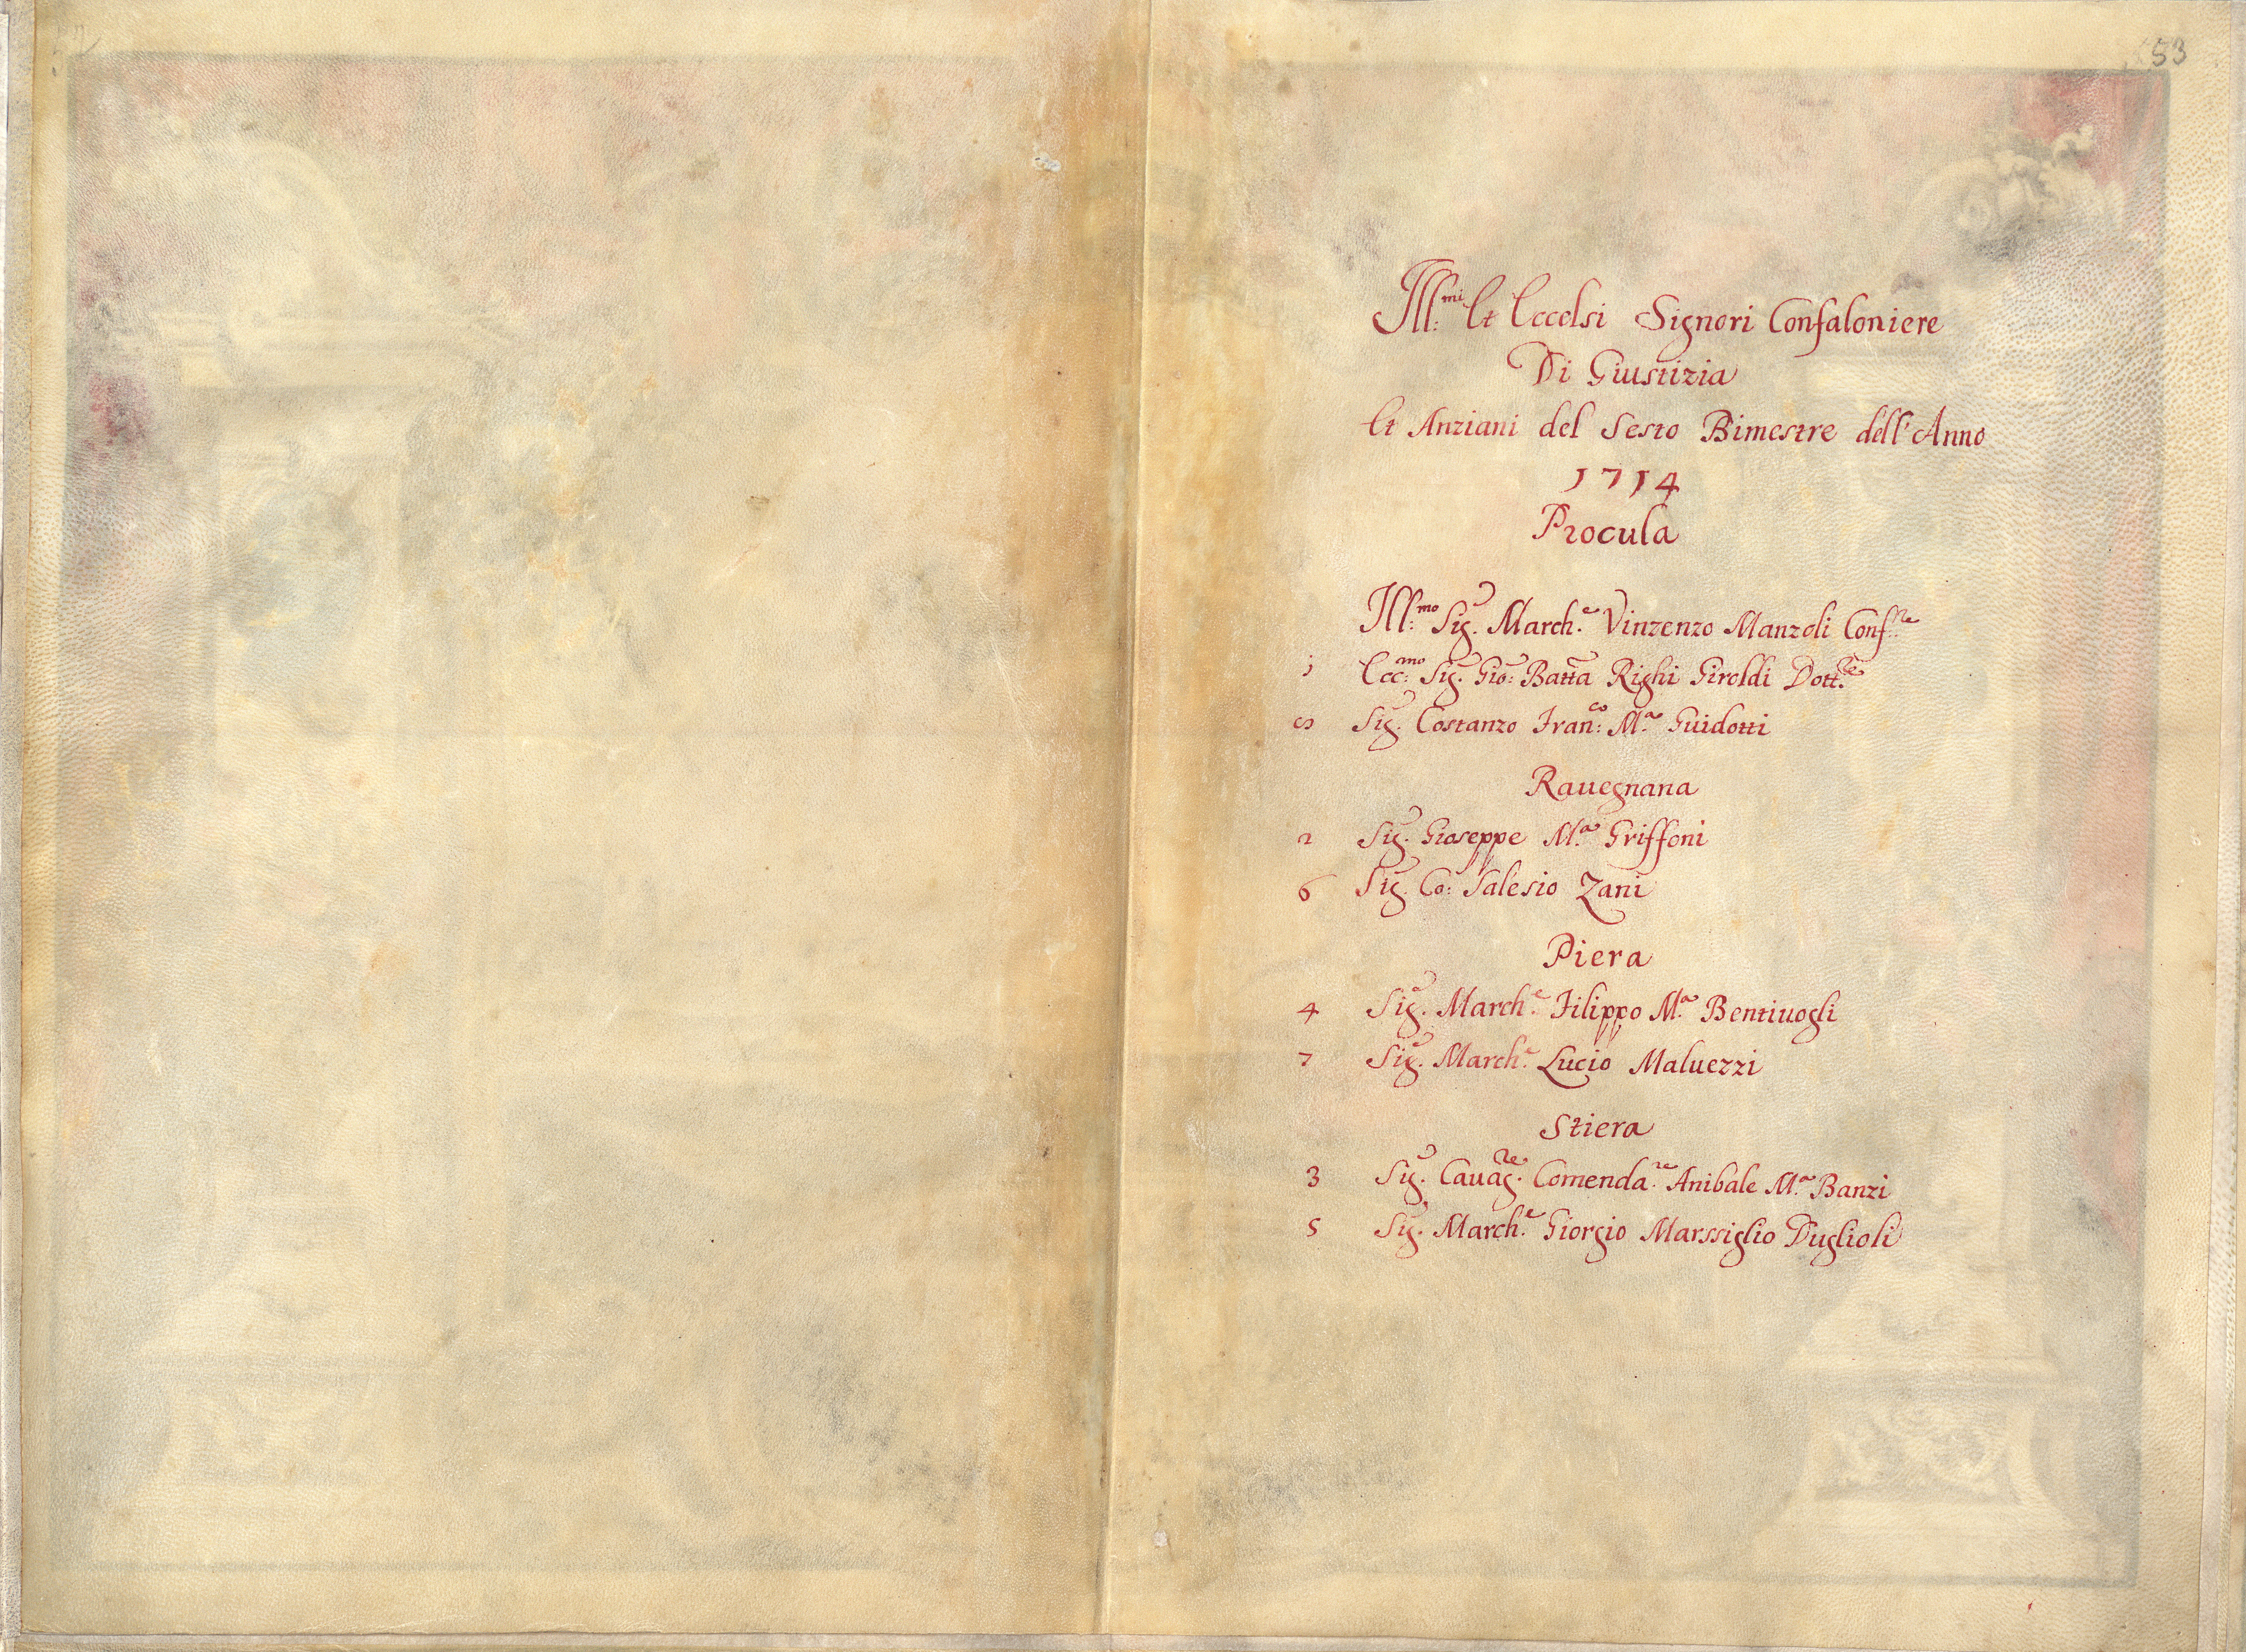 53
Ill:mi Et Eccelsi Signori Confaloniere
Di Giustizia
Et Anziani del Sesto Bimestre dell'Anno
1714
Procula
Ill:mo Sig. March.e Vinzenzo Manzoli Conf:re
1 Ecc:mo Sig. Gio: Batta Righi Giroldi Dott.re
Sig. Costanzo Fran:co M.a Guidotti
Rauegnana
2 Sig. Gioseppe M.a Griffoni
6 Sig. Co: Salesio Zani
Piera
4 Sig. March.e Filippo M.a Bentiuogli
7 Sig. March.e Lucio Maluezzi
Stiera
3 Sig. Cauag.re Comenda.re Anibale M.a Banzi
5 Sig. March.e Giorgio Marssiglio Duglioli